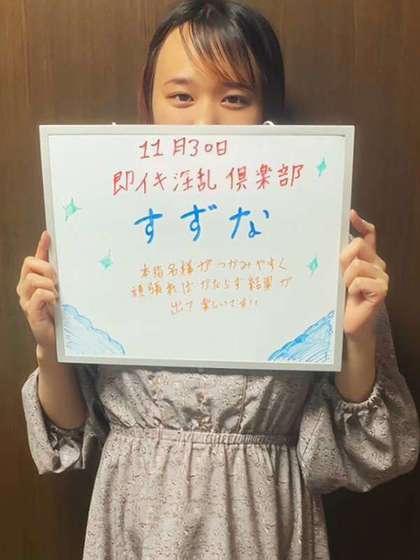 11月30日
即イキ淫乱倶楽部
すずな
本指名様がつかみやすく
頑張ればかならず結果が
出て楽しいです!!